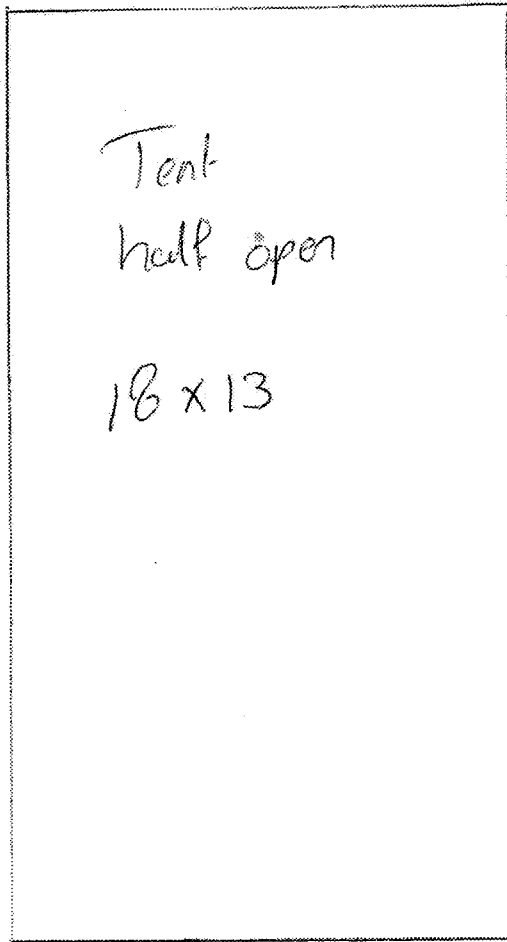 Tent
half open
18 x 13